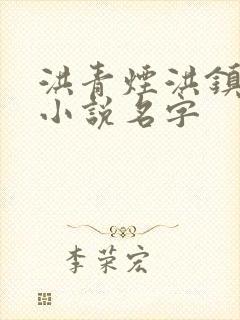 洪青煙洪鎮
小說名字
李荣宏